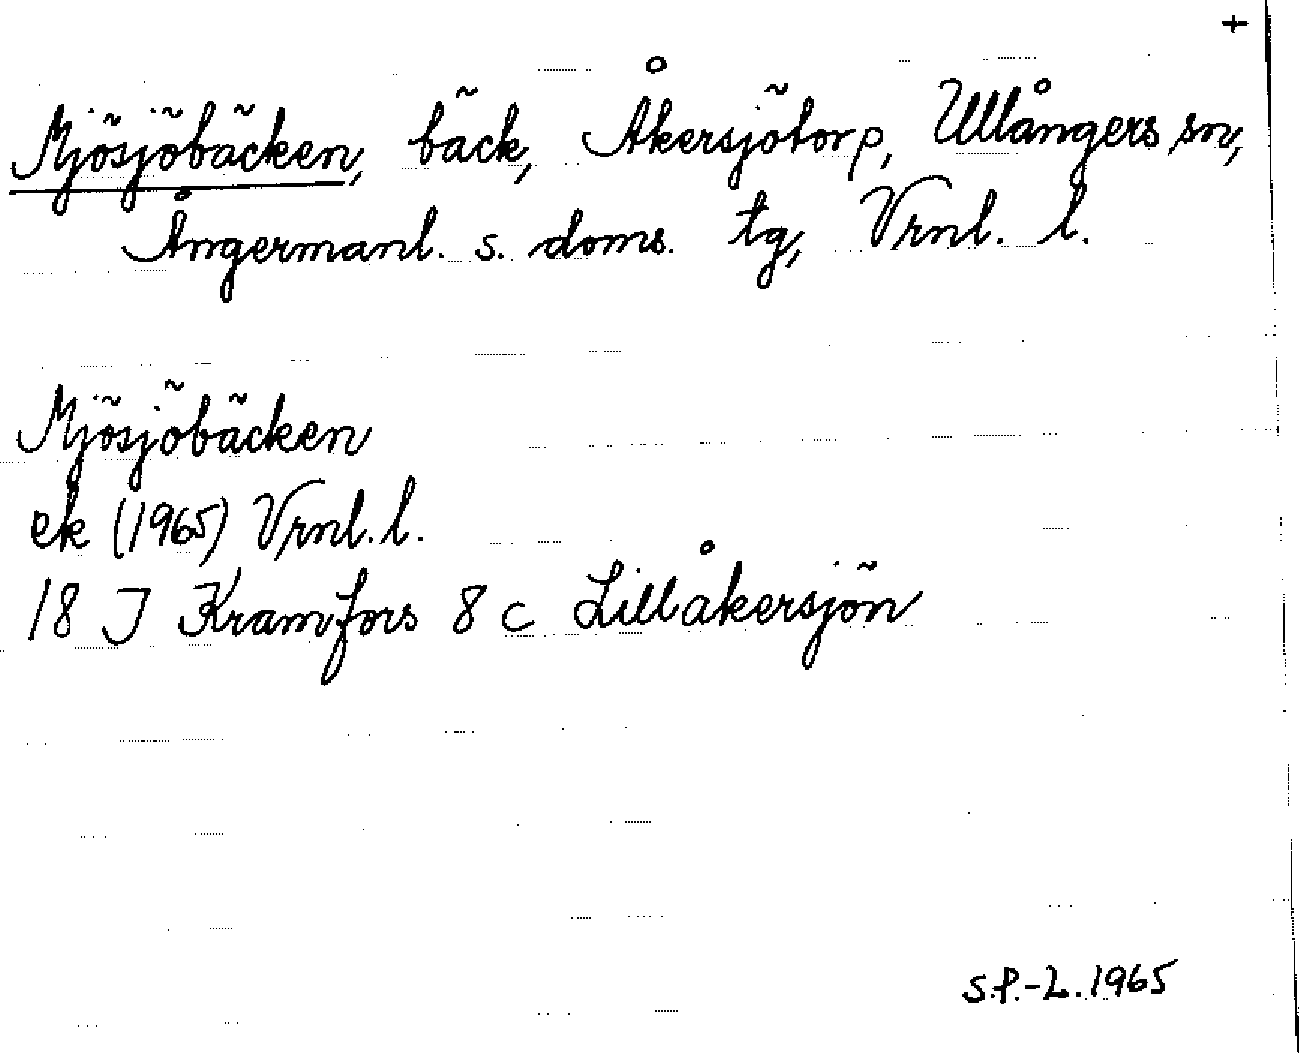 +
Mjösjöbäcken, bäck, Åkersjötorp, Ullångers sn,
Ångermanl. s. doms. tg, Vrnl. l.
Mjösjöbäcken
ek (1965) Vrnl. l.
18 J Kramfors 8 c Lillåkersjön
S.P.-L. 1965